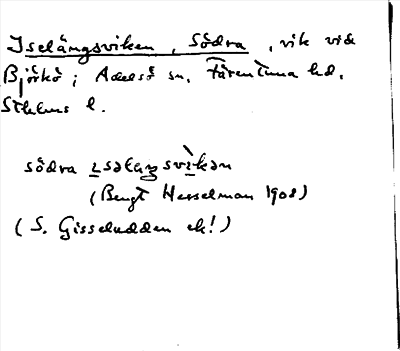 Iselängsviken, Södra, vik vid
Björkö; Adelsö sn, Färentuna hd,
Sthlms l.
södra ɩsəlaŋsvìkən
(Bengt Hesselman 1908)
(S. Gisseludden ek!)